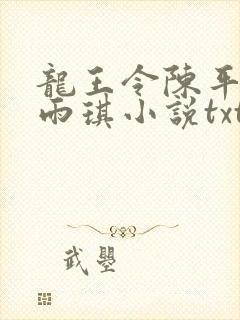 龍王令陳平
雨琪小説txt
武曌